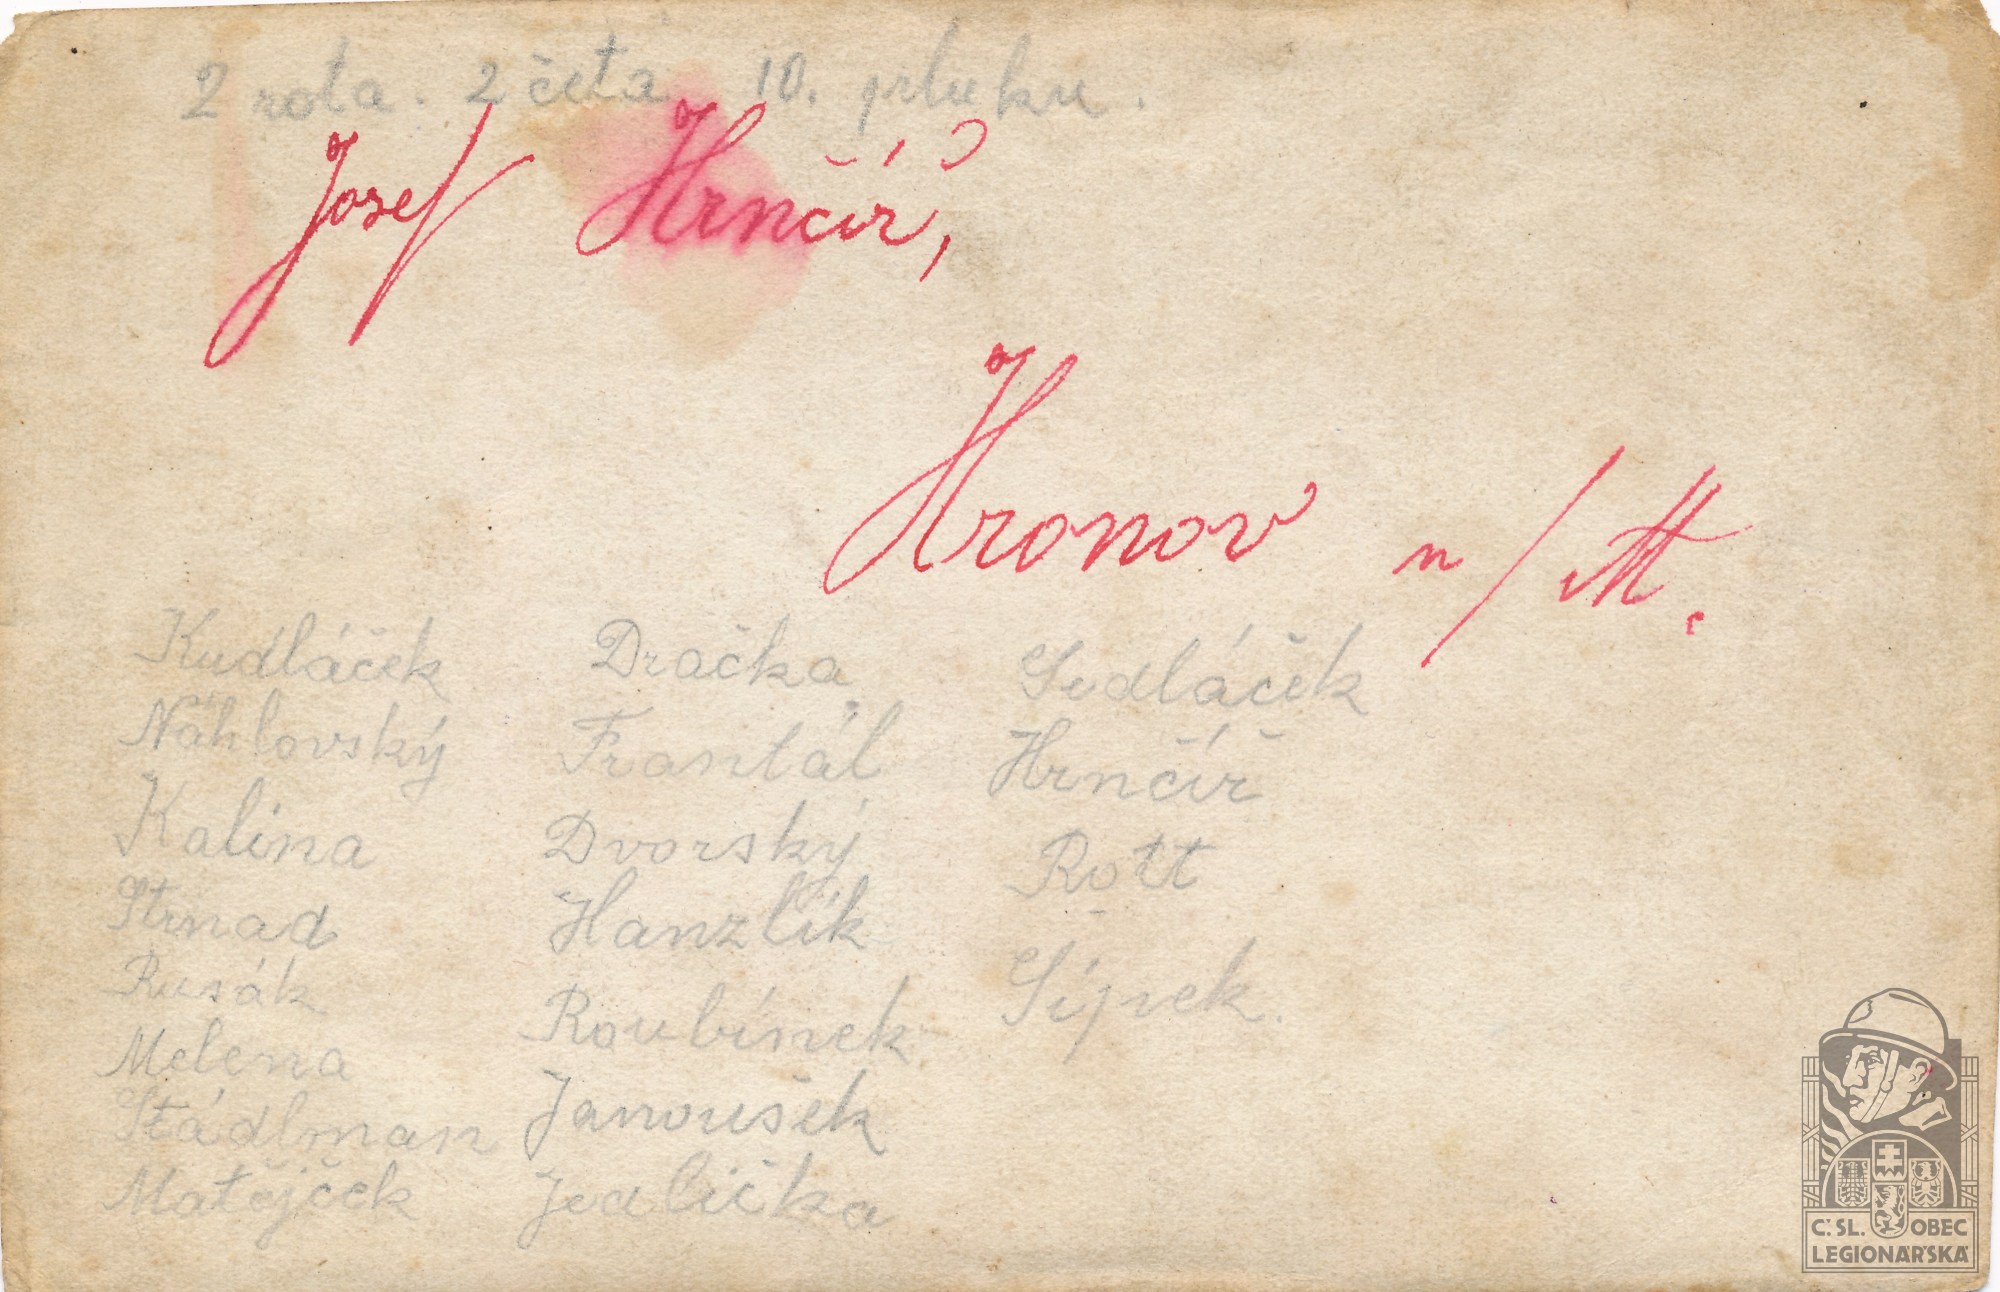 2 rota. 2 četa 10. pluku.
Josef Hrnčíř,
Hronov n/M.
Kudláček
Náhlovský
Kalina
Strnad
Rusák
Melena
Städlman
Matějček
Dračka
Dvorský
Hanzlík
Roubínek
Janoušek
Jedlička
Sedláček
Hrnčíř
Rott
Šípek.
Č.SL. OBEC
LEGIONÁŘSKÁ